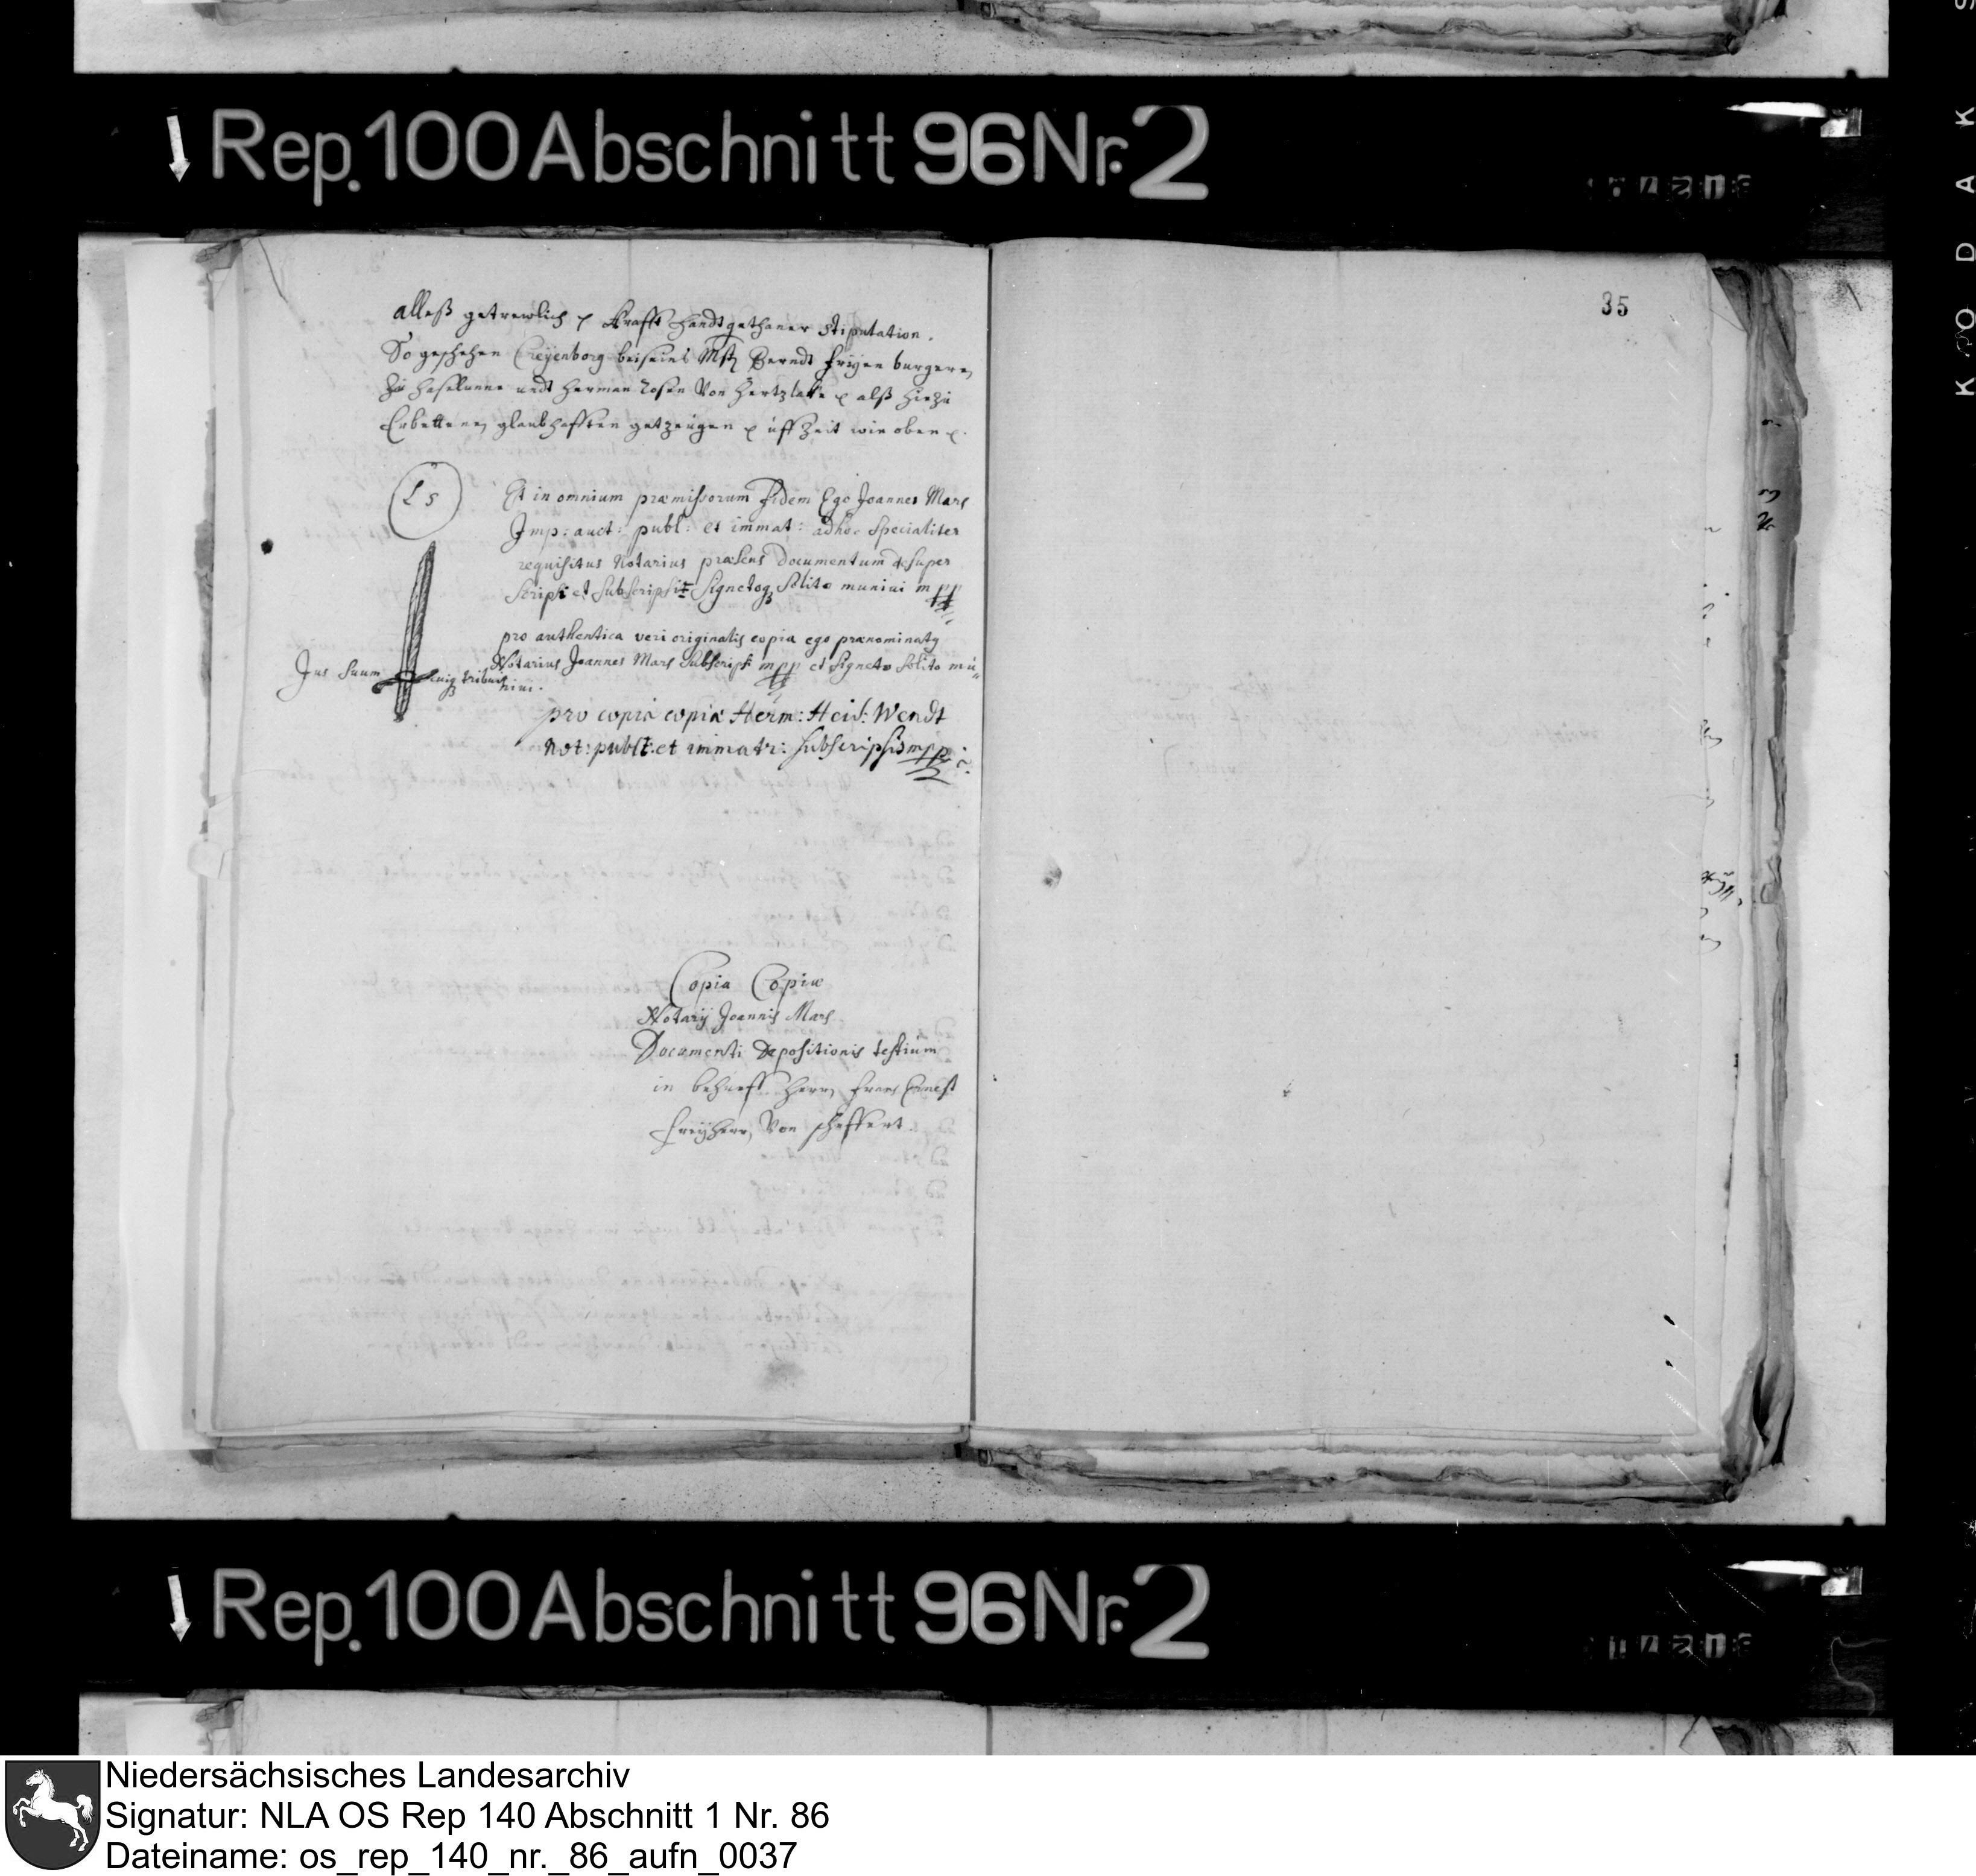 Rep. 100 Abschnitt 96 Nr. 2
alleß getrewlich krafft handtgethaner stipulation.
So geschehen Creyenborg beiseins Berndt burgern
zu Haselunne undt Herman Rosen von Hertzlake alß hiezu
Erbettene glaubhafften getzeugen uff Zeit wie oben
L S
Et in omnium præmissorum Fidem Ego Joannes Mars
Imp: auct: publ: et immat: adhoc specialiter
requisitus Notarius præsens Documentum desuper
scripsi et subscripsi signetoq solito munivi mpp
pro authentica veri originalis copia ego prænominatq
Notarius Joannes Mars subscripsi mpp et signeto solito mu„
nivi.
Jus suum cuiq tribue
pro copia copiæ Herm: Heid: Wendt
Not: publ: et immatr: subscripsit mpp
Copia Copiæ
Notarij Joannis Mars
Documenti Depositionis testium
in behueff Herrn Frans Ernest
Freyherrn von Scheffert.
35
KODAK S
Rep. 100 Abschnitt 96 Nr. 2
Niedersächsisches Landesarchiv
Signatur: NLA OS Rep 140 Abschnitt 1 Nr. 86
Dateiname: os_rep_140_nr._86_aufn_0037